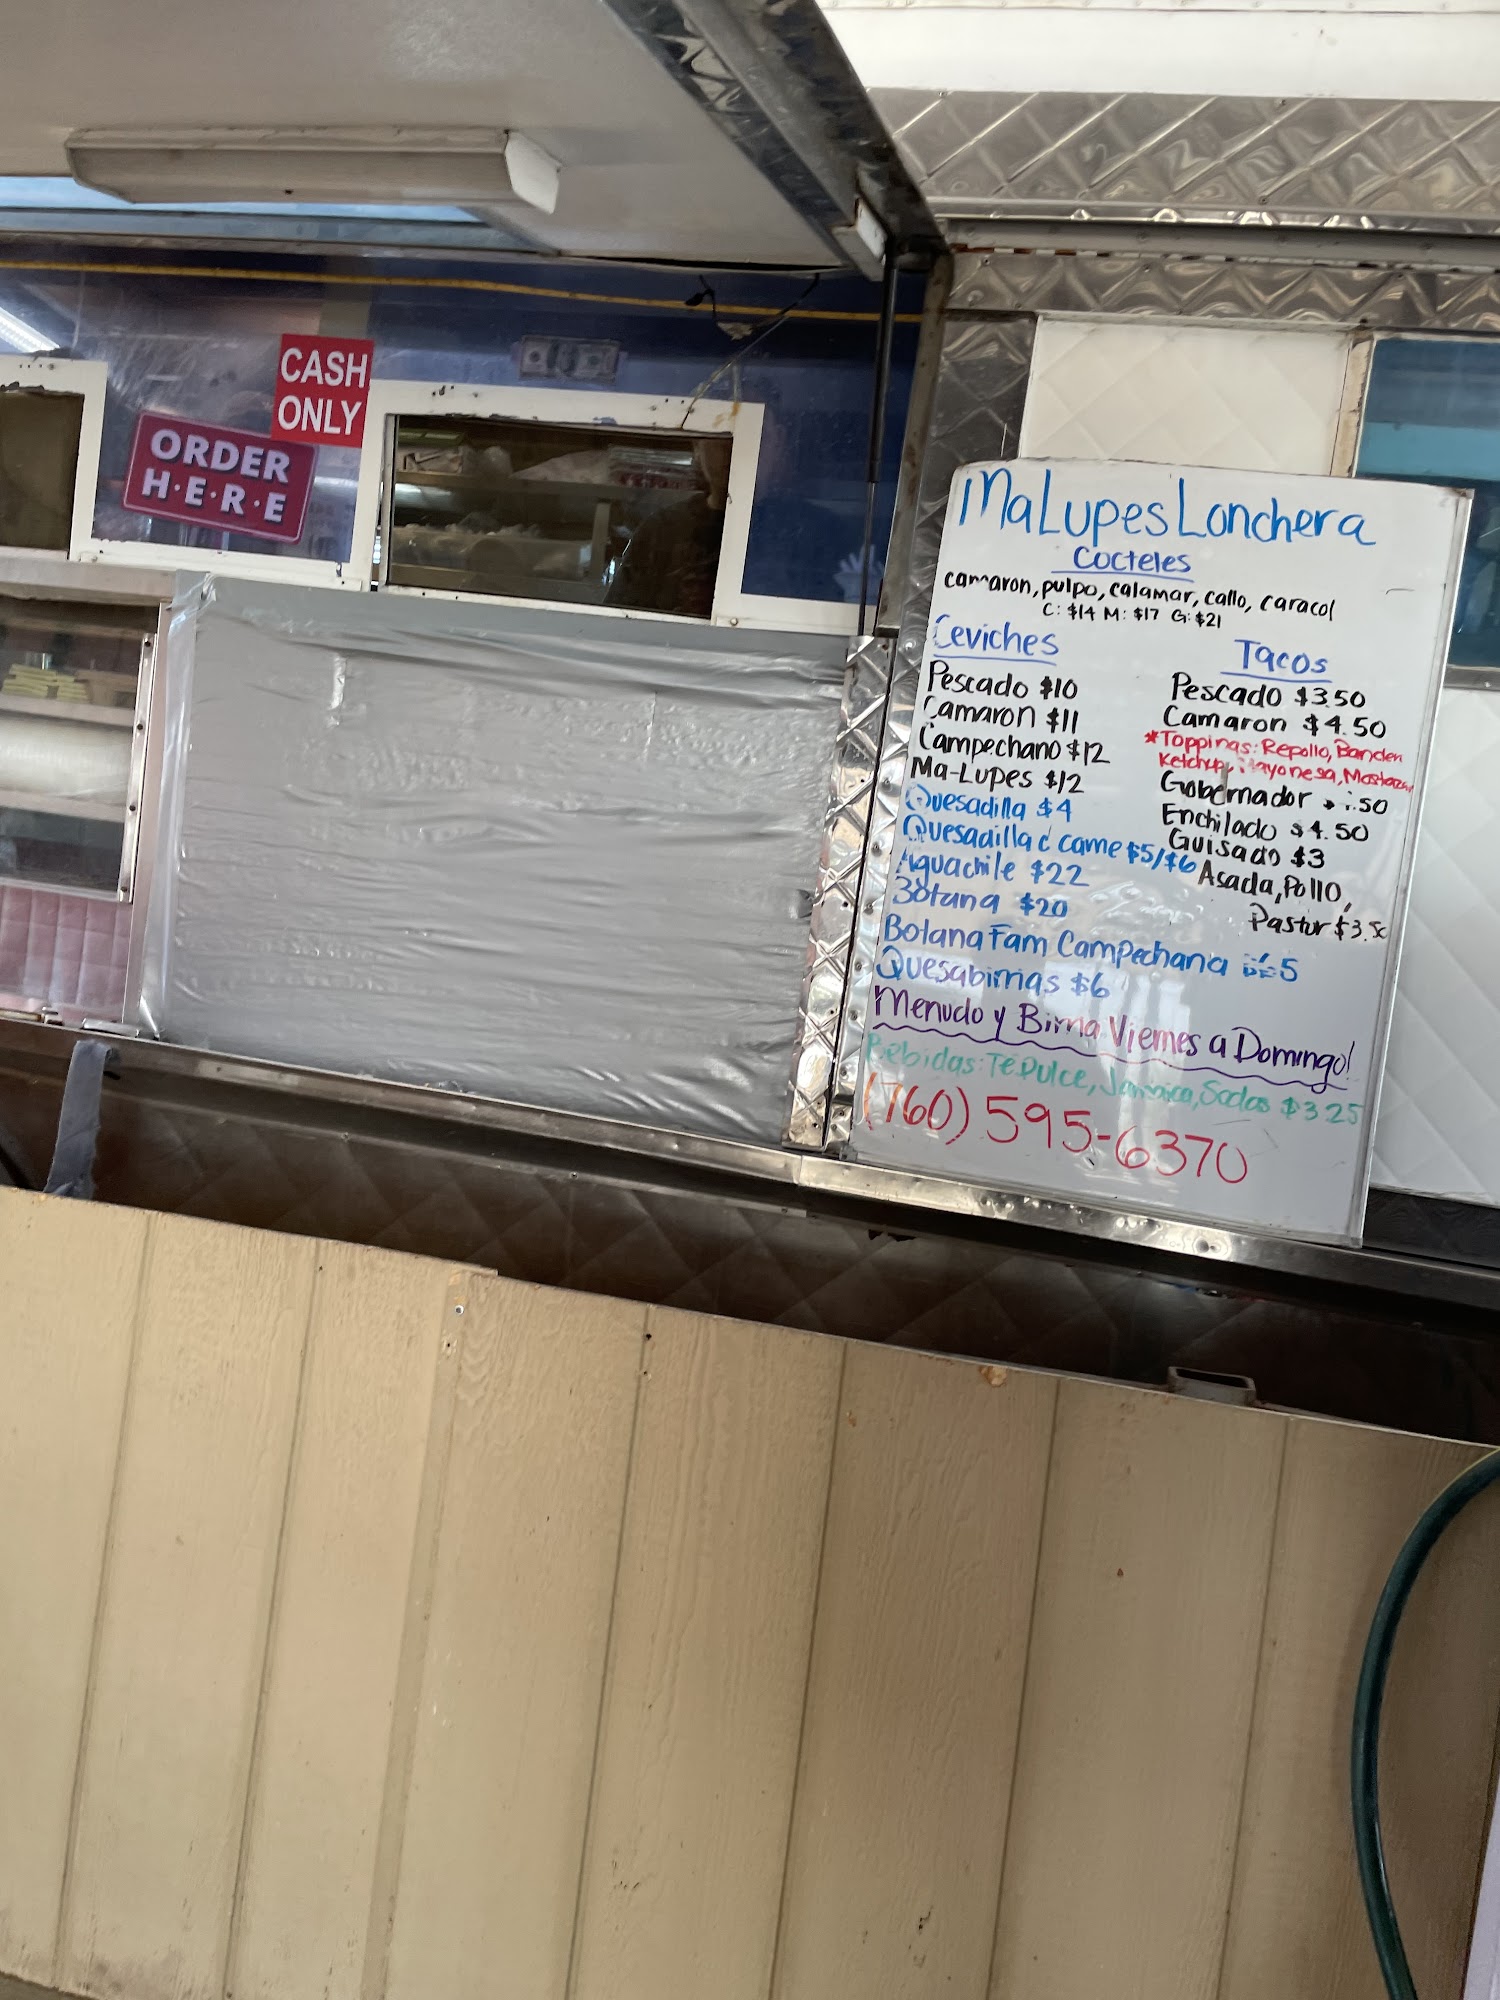 CASH
ONLY
ORDER
H·E·R·E
MaLupes Lonchera
Cocteles
camaron, pulpo, calamar, callo, caracol
C: $14 M: $17 G: $21
Ceviches
Pescado $10
Camaron $11
Campechano $12
Ma-Lupes $12
Quesadilla $4
Quesadilla c carne $5/$6
Aguachile $22
Botana $20
Botana Fam Campechana
Quesabirrias $6
Tacos
Pescado $3.50
Camaron $4.50
*Toppings: Repollo,
Ketchup, Mayonesa, Mostaza
Gobernador
Enchilado $4.50
Guisado $3
Asada, Pollo,
Pastor $3.50
Menudo y Birria Viernes a Domingo!
Bebidas: Té Dulce, Jamaica, Sodas $3.25
(760) 595-6370